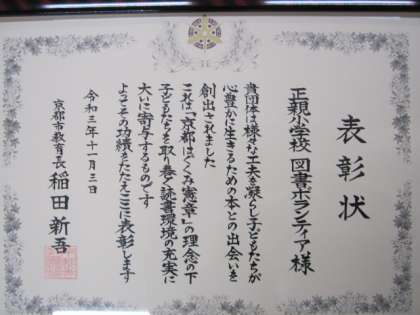 表彰状
正親小学校 図書ボランティア様
貴団体は様々な工夫を凝らし子どもたちが
心豊かに生きるための本との出会いを
創出されました
これは「京都はぐくみ憲章」の理念の下
子どもたちを取り巻く読書環境の充実に
大いに寄与するものです
よってその功績をたたえここに表彰します
令和三年十一月三日
京都市教育長 稲田新吾